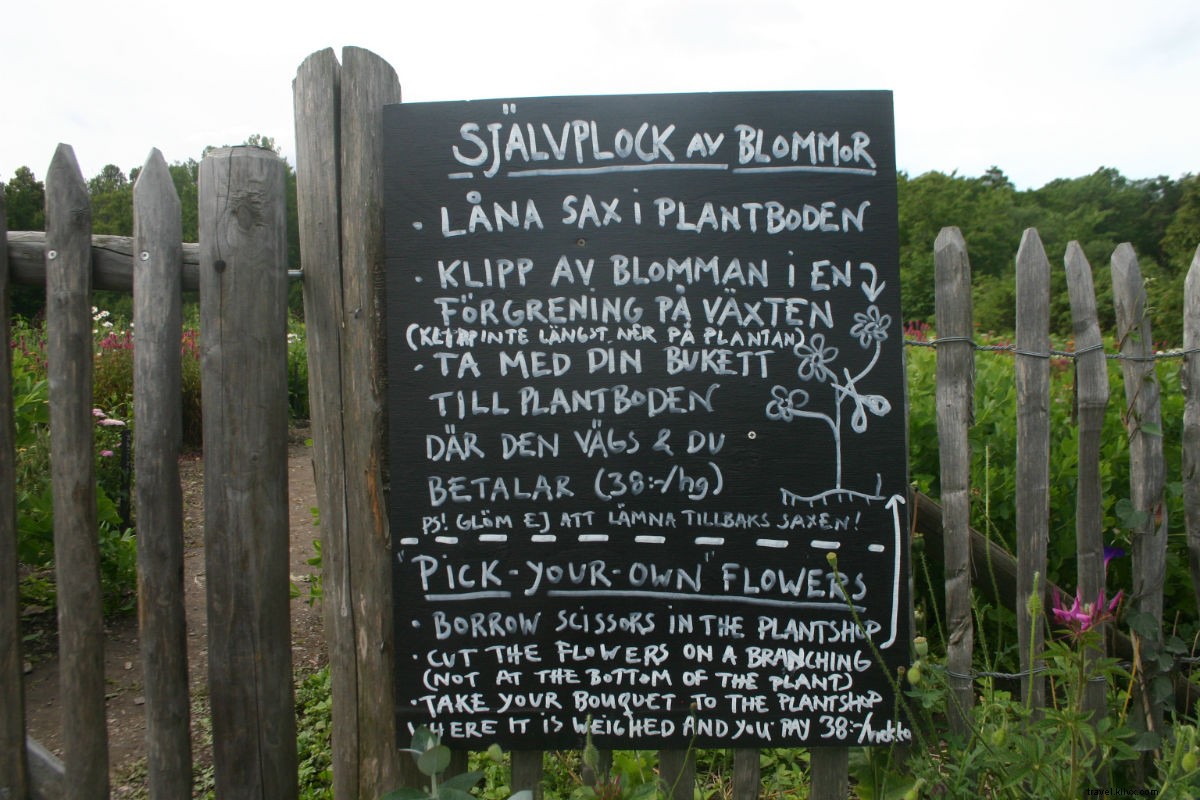 SJÄLVPLOCK AV BLOMMOR
· LÅNA SAX i PLANTBODEN
· KLIPP AV BLOMMAN i EN
FÖRGRENING PÅ VÄXTEN
(KLIPP INTE LÄNGST NER PÅ PLANTAN)
· TA MED DIN BUKETT
TILL PLANTBODEN
DÄR DEN VÄGS & DU
BETALAR (38:-/hg)
PS! GLÖM EJ ATT LÄMNA TILLBAKS SAXEN!
"PICK-YOUR-OWN" FLOWERS
· BORROW SCISSORS IN THE PLANTSHOP
· CUT THE FLOWERS ON A BRANCHING
(NOT AT THE BOTTOM OF THE PLANT)
· TAKE YOUR BOUQUET TO THE PLANTSHOP
WHERE IT IS WEIGHED AND YOU PAY 38:-/hekto